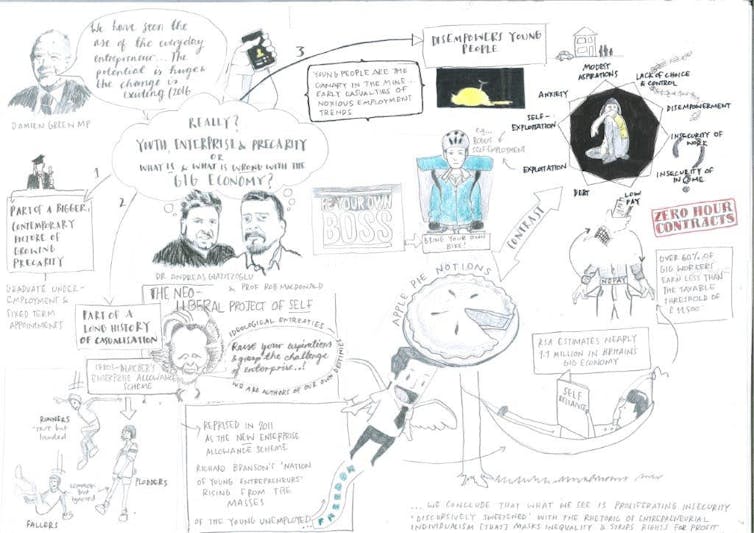 We have seen the
rise of the everyday
entrepreneur... The
potential is huge &
the change is
exciting (2016
DAMIEN GREEN MP
REALLY?
YOUTH, ENTERPRISE & PRECARITY
OR
WHAT IS & WHAT IS WRONG WITH THE
GIG ECONOMY?
DR ANDREAS GIAZITZOGLU
& PROF ROB MACDONALD
1
PART OF A BIGGER,
CONTEMPORARY
PICTURE OF
GROWING
PRECARITY
GRADUATE UNDER-
EMPLOYMENT &
FIXED TERM
APPOINTMENTS
2
PART OF A
LONG HISTORY
OF CASUALISATION
ENTERPRISE ALLOWANCE
SCHEME
RUNNERS
PLODDERS
FALLERS
THE NEO-
LIBERAL PROJECT OF SELF
IDEOLOGICAL ENTREATIES
Raise your aspirations
& grasp the challenge
of enterprise..!
WE ARE AUTHORS OF OUR OWN DESTINIES
REPRISED IN 2011
AS THE NEW ENTERPRISE
ALLOWANCE SCHEME
RICHARD BRANSON'S 'NATION
OF YOUNG ENTREPRENEURS'
RISING FROM THE
MASSES
OF THE YOUNG UNEMPLOYED...
FREEDOM
3
DISEMPOWERS YOUNG
PEOPLE
YOUNG PEOPLE ARE THE
CANARY IN THE MINE...
EARLY CASUALTIES OF
NOXIOUS EMPLOYMENT
TRENDS
e.g...
BOGUS
SELF-EMPLOYMENT
BE YOUR OWN
BOSS
BRING YOUR OWN
BIKE!
APPLE PIE NOTIONS
CONTRAST
MODEST
ASPIRATIONS
LACK OF CHOICE
& CONTROL
DISEMPOWERMENT
INSECURITY OF
WORK
INSECURITY OF
INCOME
LOW
PAY
DEBT
EXPLOITATION
SELF-
EXPLOITATION
ANXIETY
ZERO HOUR
CONTRACTS
NO PAY
OVER 60% OF
GIG WORKERS
EARN LESS THAN
THE TAXABLE
THRESHOLD OF
£11,500
RSA ESTIMATES NEARLY
1.1 MILLION IN BRITAIN'S
GIG ECONOMY
SELF
RELIANCE
... WE CONCLUDE THAT WHAT WE SEE IS PROLIFERATING INSECURITY
'DISCURSIVELY SWEETENED' WITH THE RHETORIC OF ENTREPRENEURIAL
INDIVIDUALISM [THAT] MASKS INEQUALITY & STRIPS RIGHTS FOR PROFIT...